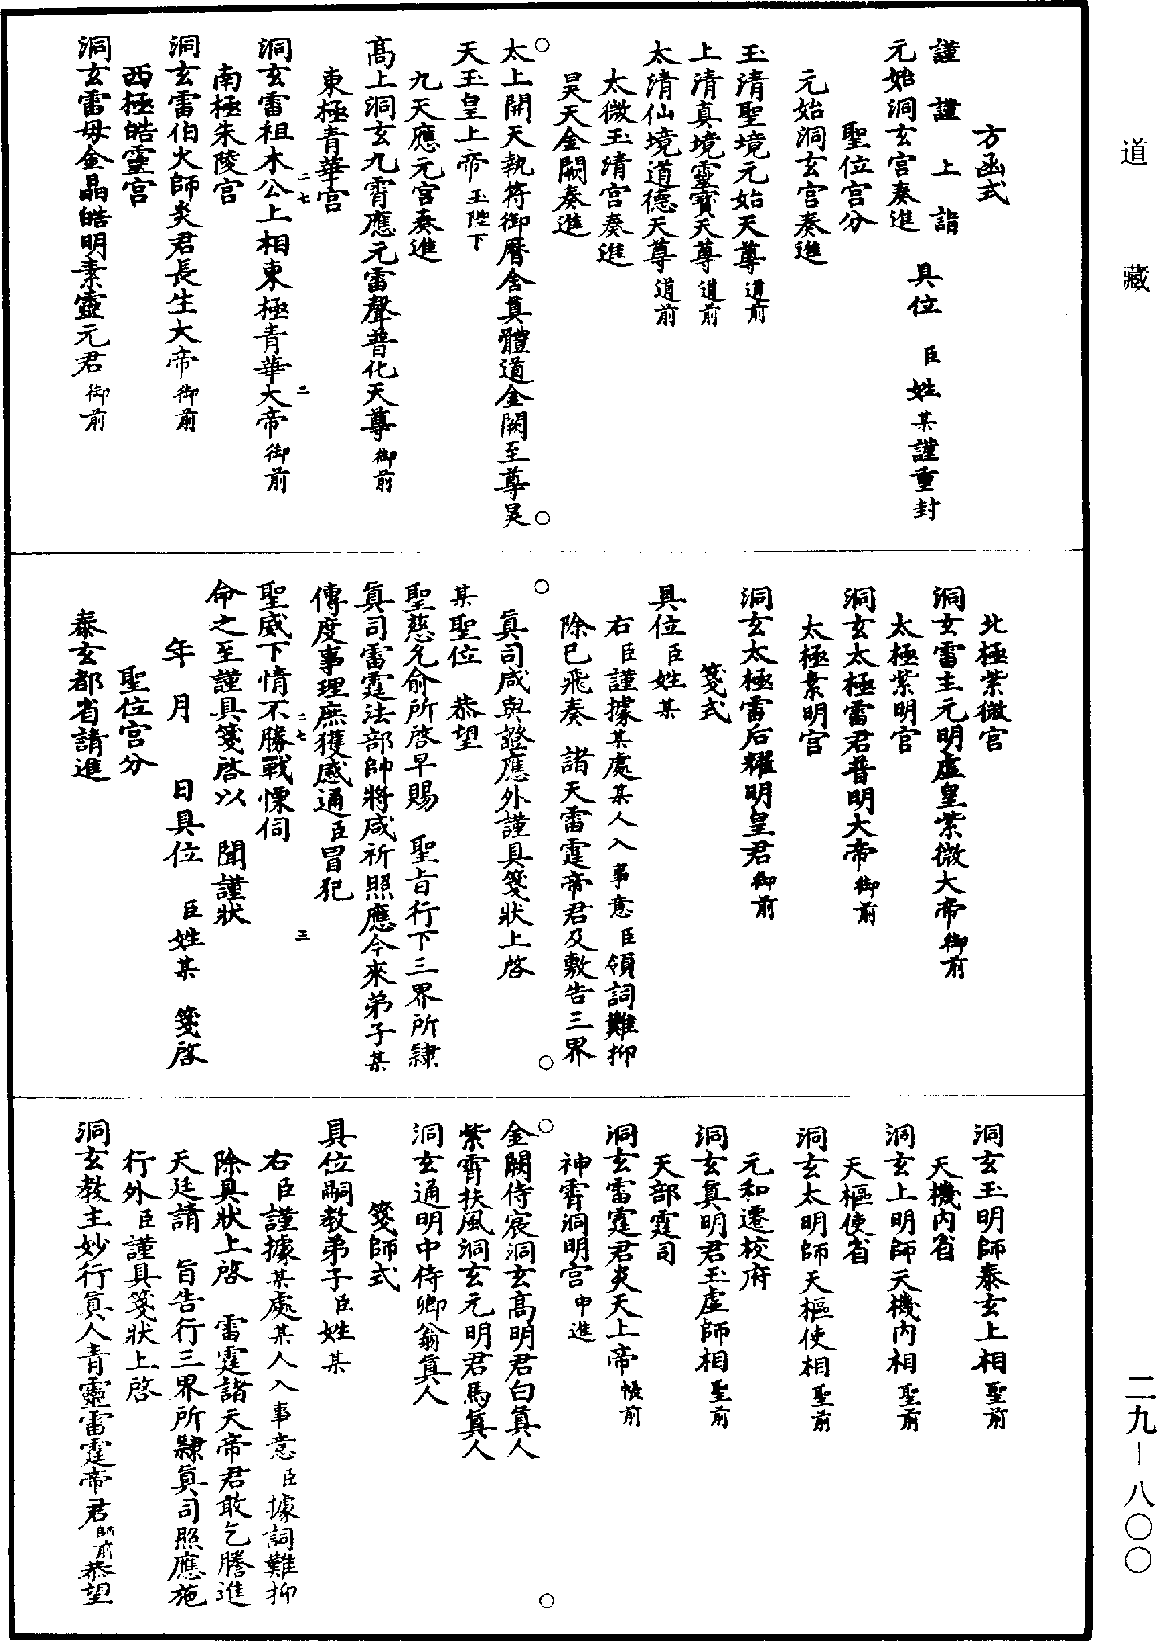 道藏
方函式
謹謹上詣 具位 臣姓某謹重封
元始洞玄宮奏進
聖位宮分
元始洞玄宮奏進
玉清聖境元始天尊 道前
上清真境靈寶天尊 道前
太清仙境道德天尊 道前
太微玉清宮奏進
昊天金闕奏進
太上開天執符御曆含真體道金闕至尊昊
天玉皇上帝 玉陛下
九天應元宮奏進
高上洞玄九霄應元雷聲普化天尊 御前
東極青華宮
二七 二
洞玄雷祖木公上相東極青華大帝 御前
南極朱陵宮
洞玄雷伯火師炎君長生大帝 御前
西極皓靈宮
洞玄雷母金晶皓明素靈元君 御前
北極紫微宮
洞玄雷主元明虛皇紫微大帝 御前
太極紫明宮
洞玄太極雷君普明大帝 御前
太極素明宮
洞玄太極雷后耀明皇君 御前
箋式
具位臣姓某
右臣謹據某處某人入事意臣領詞難抑
除已飛奏 諸天雷霆帝君及敷告三界
真司咸與證應外謹具箋狀上啓
某聖位 恭望
聖慈允俞所啓早賜 聖旨行下三界所隸
真司雷霆法部帥將咸祈照應今來弟子某
傳度事理庶獲感通臣冒犯
二七 三
聖威下情不勝戰慄伺
命之至謹具箋啓以 聞謹狀
年 月 日具位 臣姓某 箋啓
聖位宮分
泰玄都省請進
洞玄玉明師泰玄上相 聖前
天機內省
洞玄上明師天機內相 聖前
天樞使省
洞玄太明師天樞使相 聖前
元和遷校府
洞玄真明君玉虛師相 聖前
天部霆司
洞玄雷霆君炎天上帝 帳前
神霄洞明宮 申進
金闕侍宸洞玄高明君白真人
紫霄扶風洞玄元明君馬真人
洞玄通明中侍卿翁真人
箋師式
具位嗣教弟子臣姓某
右臣謹據某處某人入事意臣據詞難抑
除具狀上啓 雷霆諸天帝君敢乞騰進
天廷請 旨告行三界所隸真司照應施
行外臣謹具箋狀上啓
洞玄教主妙行真人青靈雷霆帝君 師前 恭望
二九—八〇〇